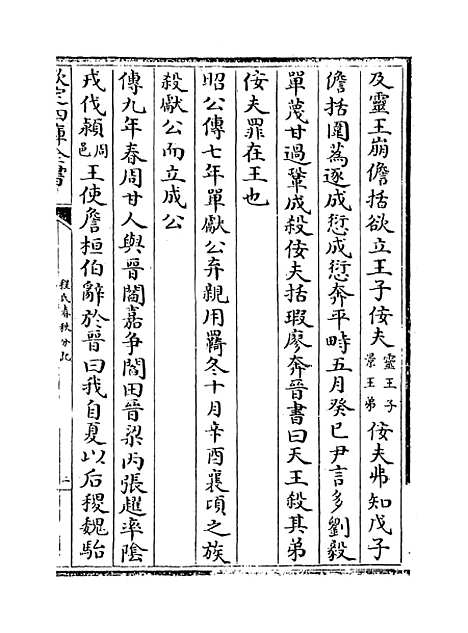 及靈王崩儋括欲立王子佞夫靈王子景王弟佞夫弗知戊子
儋括圍蒍逐成愆成愆奔平畤五月癸巳尹言多劉毅
單蔑甘過鞏成殺佞夫括瑕廖奔晉書曰天王殺其弟
佞夫罪在王也
昭公傳七年單獻公弃親用羇冬十月辛酉襄頃之族
殺獻公而立成公
傳九年春周甘人與晉閻嘉争閻田晉梁丙張趯率隂
戎伐潁周邑王使詹桓伯辭於晉曰我自夏以后稷魏駘
欽定四庫全書
程氏春秋分記
二